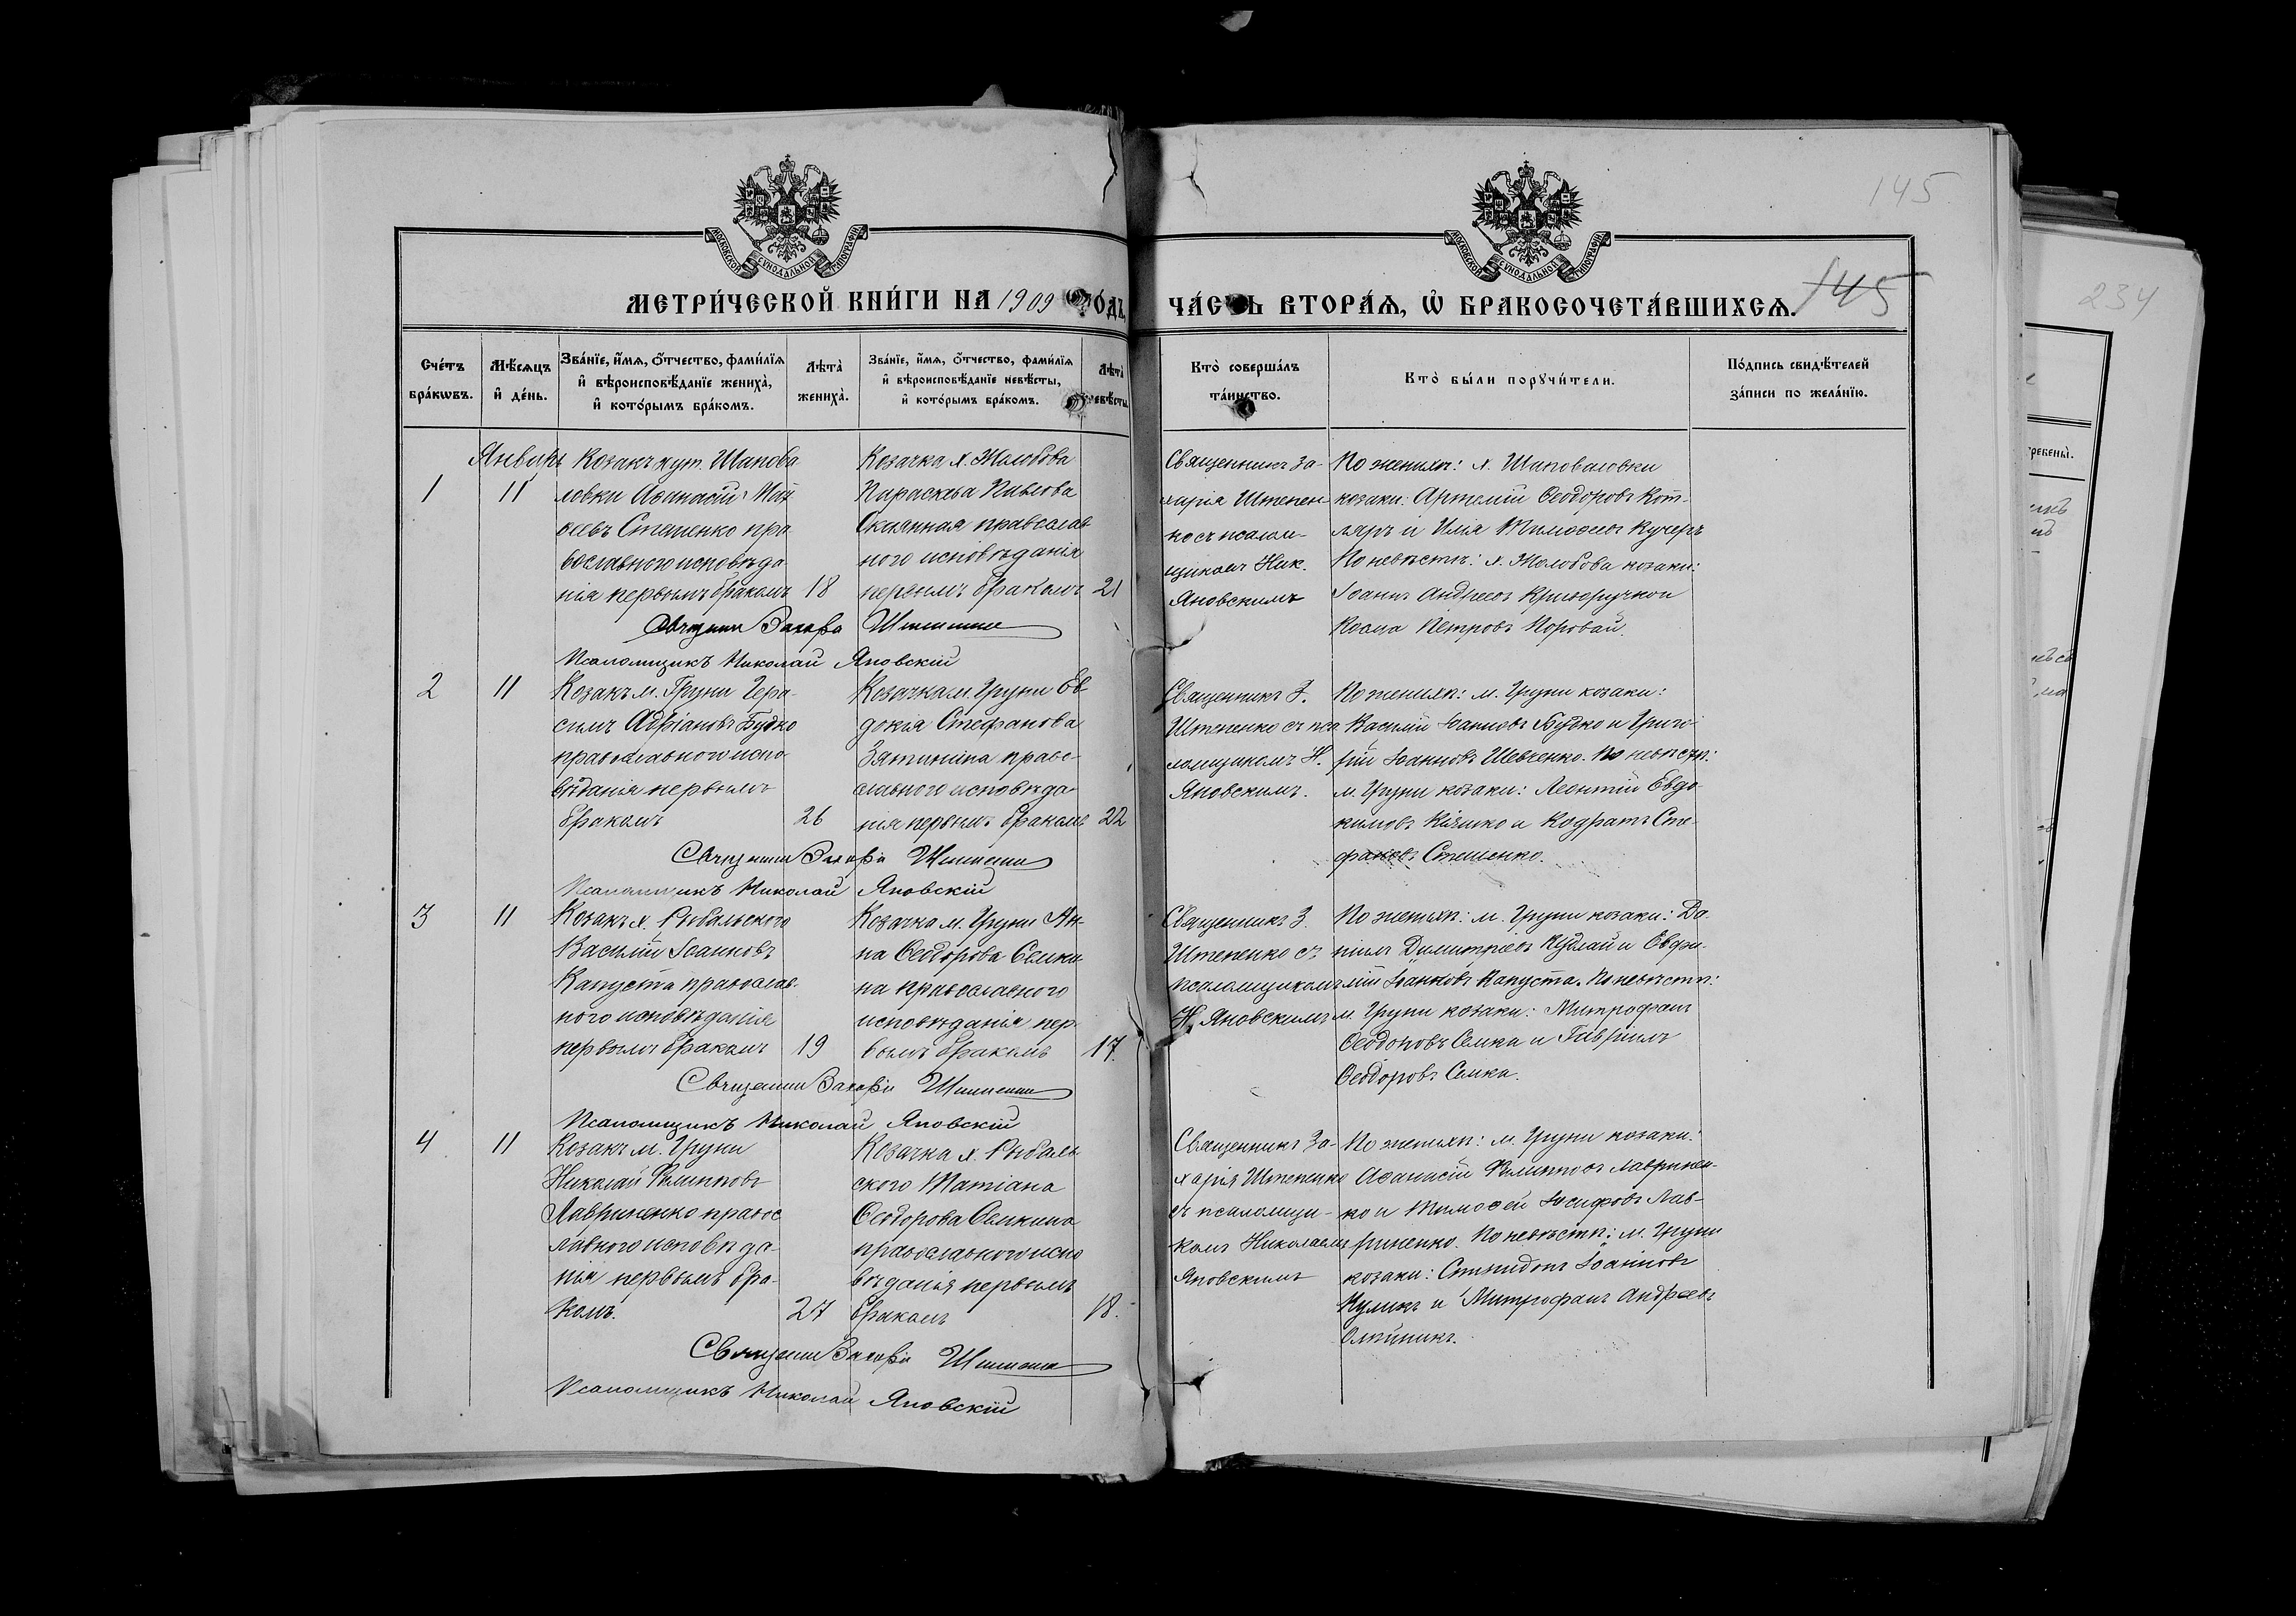 145
МОСКОВСКОЙ СУНОДАЛЬНОЙ ТИПОГРАФІИ
МОСКОВСКОЙ СУНОДАЛЬНОЙ ТИПОГРАФІИ
МЕТРИ́ЧЕСКОЙ КНИ́ГИ НА 1909 ГО́ДЪ,
ЧА́СТЬ ВТОРА́Ѧ, Ѡ БРАКОСОЧЕТА́ВШИХСѦ.
145
234
Сче́тъ бра́кѡвъ.
Мѣ́сѧцъ и҆ де́нь.
Зва́нїе, и҆́мѧ, ѻ҆́тчество, фами́лїѧ и҆ вѣроисповѣ́данїе жениха̀, и҆ кото́рымъ бра́комъ.
Лѣта̀ жениха̀.
Зва́нїе, и҆́мѧ, ѻ҆́тчество, фами́лїѧ и҆ вѣроисповѣ́данїе невѣ́сты, и҆ кото́рымъ бра́комъ.
Лѣта̀ невѣ́сты
Кто̀ соверша́лъ та́инство.
Кто̀ бы́ли порꙋчи́тели.
По́дпись свидѣ́телей за́писи по жела́нїю.
Январь
1
11
Козакъ хут. Шапова
ловки Аѳанасій Мат
ѳеевъ Стешенко пра
вославного исповѣда
нія первымъ бракомъ
18
Козачка х. Жолобова
Параскева Павлова
православ
ного исповѣданія
первымъ бракомъ
21
Священникъ За-
харія Штепен
ко съ псалом-
щикомъ Ник.
Яновскимъ
По женихѣ: х. Шаповаловки
козаки: Артемій Ѳеодоровъ Кот-
ляръ и Илія Тимоѳеевъ Кучеръ
По невѣстѣ: х. Жолобова козаки:
Іоаннъ Андреевъ Криворучко и
Косма Петровъ Коровай.
Псаломщикъ Николай Яновскій
2
11
Козакъ м. Груни Гера-
симъ Адріановъ Будко
православного испо-
вѣданія первымъ
бракомъ
26
Козачка м. Груни Ев-
докія Стефанова
правос-
лавного исповѣда-
нія первымъ бракомъ
22
Священникъ З.
Штепенко съ пса
ломщикомъ Н.
Яновскимъ.
По женихѣ: м. Груни козаки:
Василій Іоанновъ Будко и Григо-
рій Іоанновъ Шевченко. По невѣстѣ:
м. Груни козаки: Леонтій Евдо-
кимовъ Кіяшко и Кодратъ Сте-
фановъ Стешенко.
Псаломщикъ Николай Яновскій
3
11
Козакъ х. Рыбальского
Василій Іоанновъ
Капуста православ-
ного исповѣданія
первымъ бракомъ
19
Козачка м. Груни Ан-
на Ѳеодорова Семки-
на православного
исповѣданія пер-
вымъ бракомъ
17.
Священникъ З.
Штепенко съ
псаломщикомъ
Н. Яновскимъ
По женихѣ: м. Груни козаки: Да-
ніилъ Димитріевъ Кудлай и Евфи-
мій Іоанновъ Капуста. По невѣстѣ:
м. Груни козаки: Митрофанъ
Ѳеодоровъ Семка и Гавріилъ
Ѳеодоровъ Семка.
Псаломщикъ Николай Яновскій
4
11
Козакъ м. Груни
Николай Филипповъ
Лавриненко правос
лавного исповѣда-
нія первымъ бра-
комъ.
27
Козачка х. Рыбаль
ского Татіана
Ѳеодорова Семкина
православного испо
вѣданія первымъ
бракомъ
18.
Священникъ За-
харія Штепенко
съ псаломщи-
комъ Николаемъ
Яновскимъ
По женихѣ: м. Груни козаки:
Аѳанасій Филипповъ Лавринен-
ко и Тимоѳей Іосифовъ Лав-
риненко. По невѣстѣ: м. Груни
козаки: Спиридонъ Іоанновъ
Куликъ и Митрофанъ Андреевъ
Олѣйникъ.
Псаломщикъ Николай Яновскій